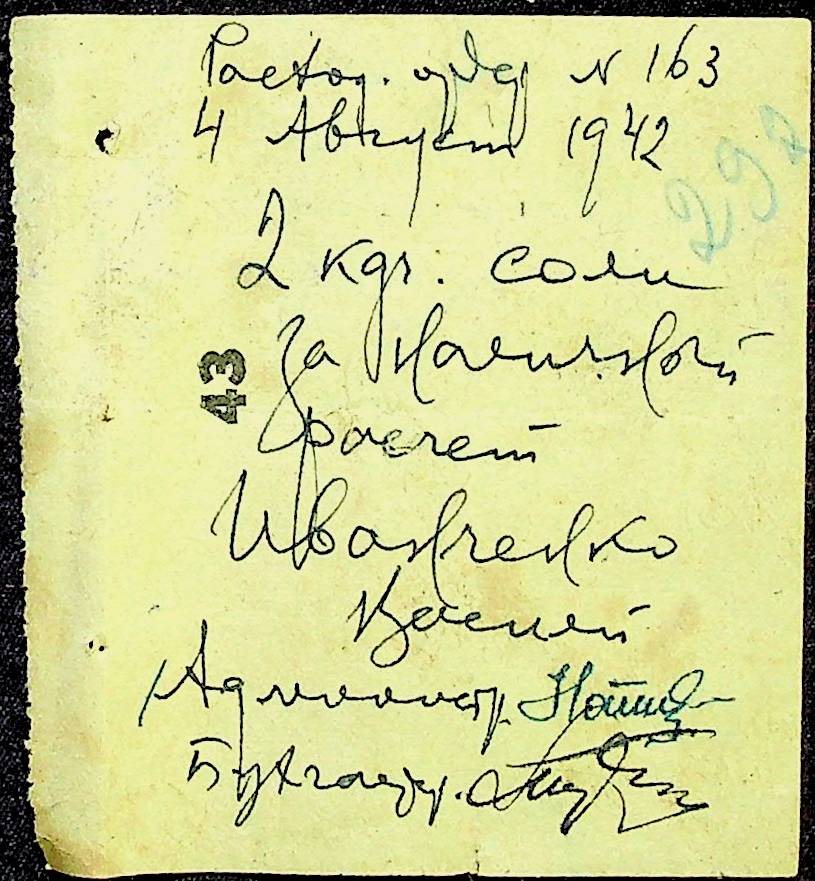 Расход. ордер N 163
4 Август 1942
292
2 кгч. соли
За наличной
43
расчет
Иванченко
Василий
Администр.
Бухгалтер.